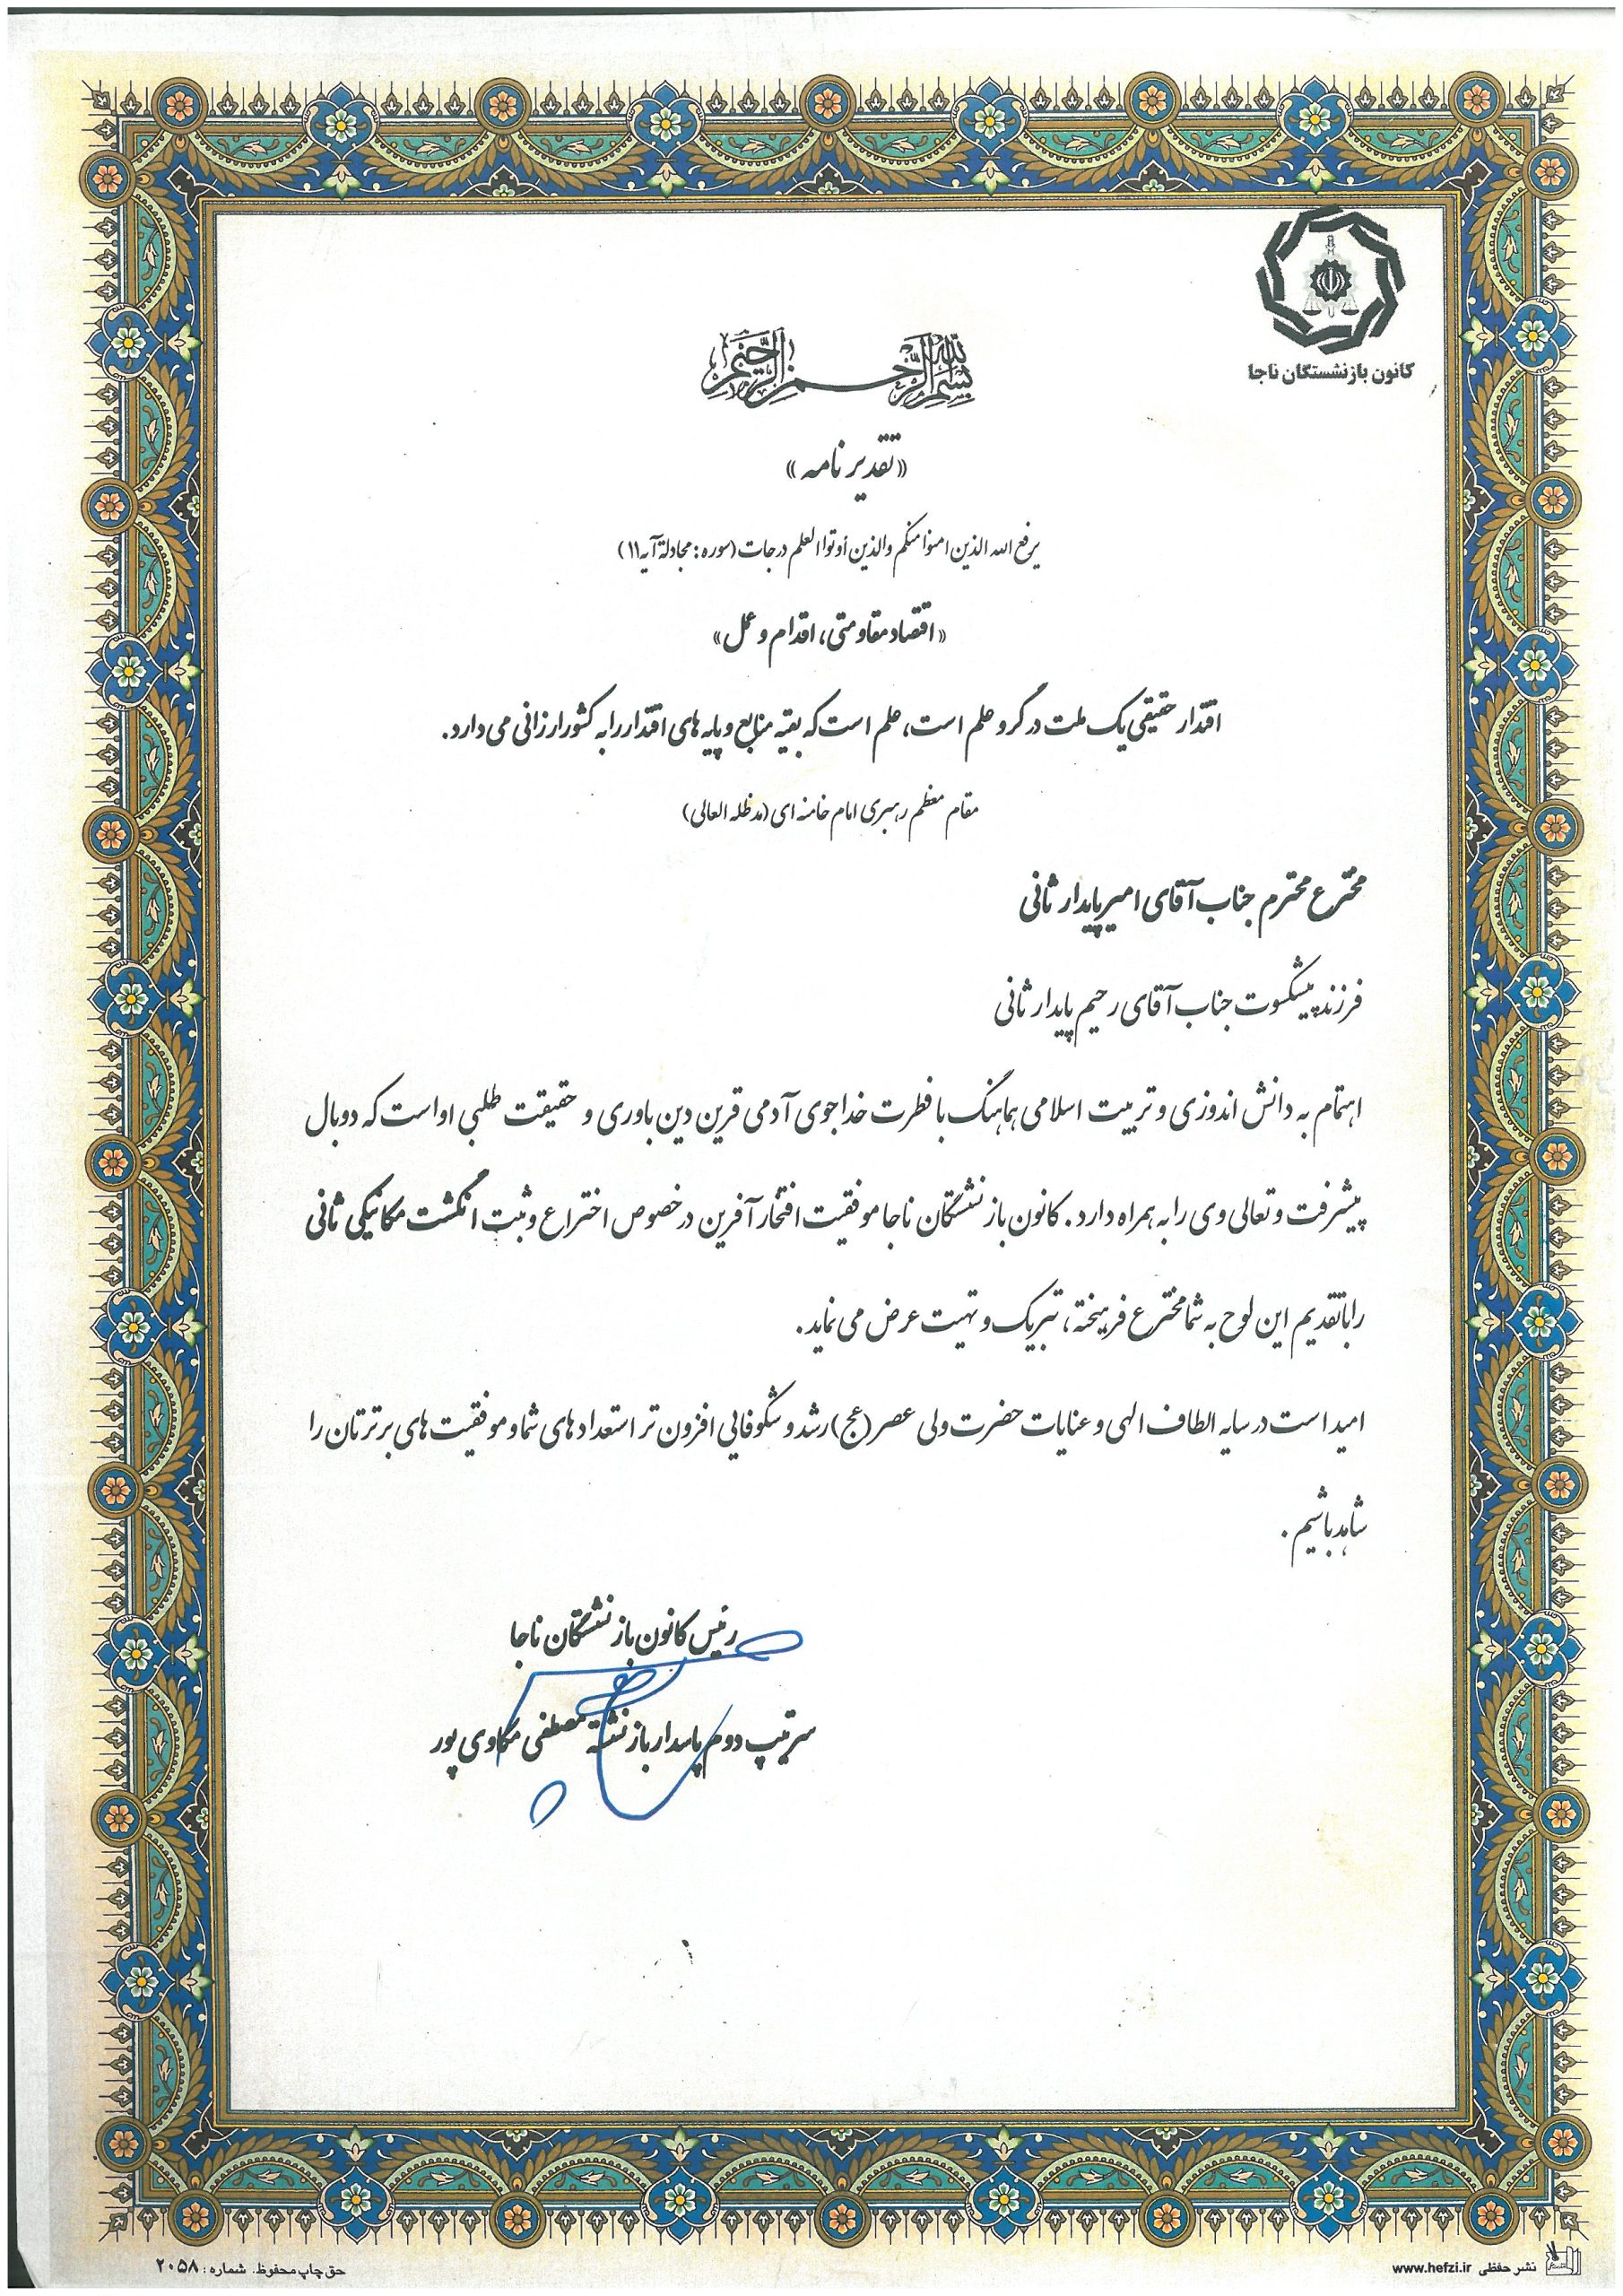 کانون بازنشستگان ناجا
بسم الله الرحمن الرحیم
«تقدیر نامه»
یرفع الله الذین امنوا منکم والذین أوتوا العلم درجات (سوره: مجادلة آیه ۱۱)
«اقتصاد مقاومتی، اقدام و عمل»
اقتدار حقیقی یک ملت در گرو علم است، علم است که بقیه منابع و پایه های اقتدار را به کشور ارزانی می دارد.
مقام معظم رهبری امام خامنه ای (مدظله العالی)
مخترع محترم جناب آقای امیر پایدار ثانی
فرزند پیشکسوت جناب آقای رحیم پایدار ثانی
اهتمام به دانش اندوزی و تربیت اسلامی هماهنگ با فطرت خداجوی آدمی قرین دین باوری و حقیقت طلبی او است که دو بال
پیشرفت و تعالی وی را به همراه دارد. کانون بازنشستگان ناجا موفقیت افتخار آفرین در خصوص اختراع و ثبت انگشت مکانیکی ثانی
را با تقدیم این لوح به شما مخترع فرهیخته، تبریک و تهنیت عرض می نماید.
امید است در سایه الطاف الهی و عنایات حضرت ولی عصر (عج) رشد و شکوفایی افزون تر استعداد های شما و موفقیت های برترتان را
شاهد باشیم.
رئیس کانون بازنشستگان ناجا
سرتیپ دوم پاسدار بازنشسته مصطفی مکاوی پور
حق چاپ محفوظ. شماره: ۲۰۵۸
نشر حفظی www.hefzi.ir